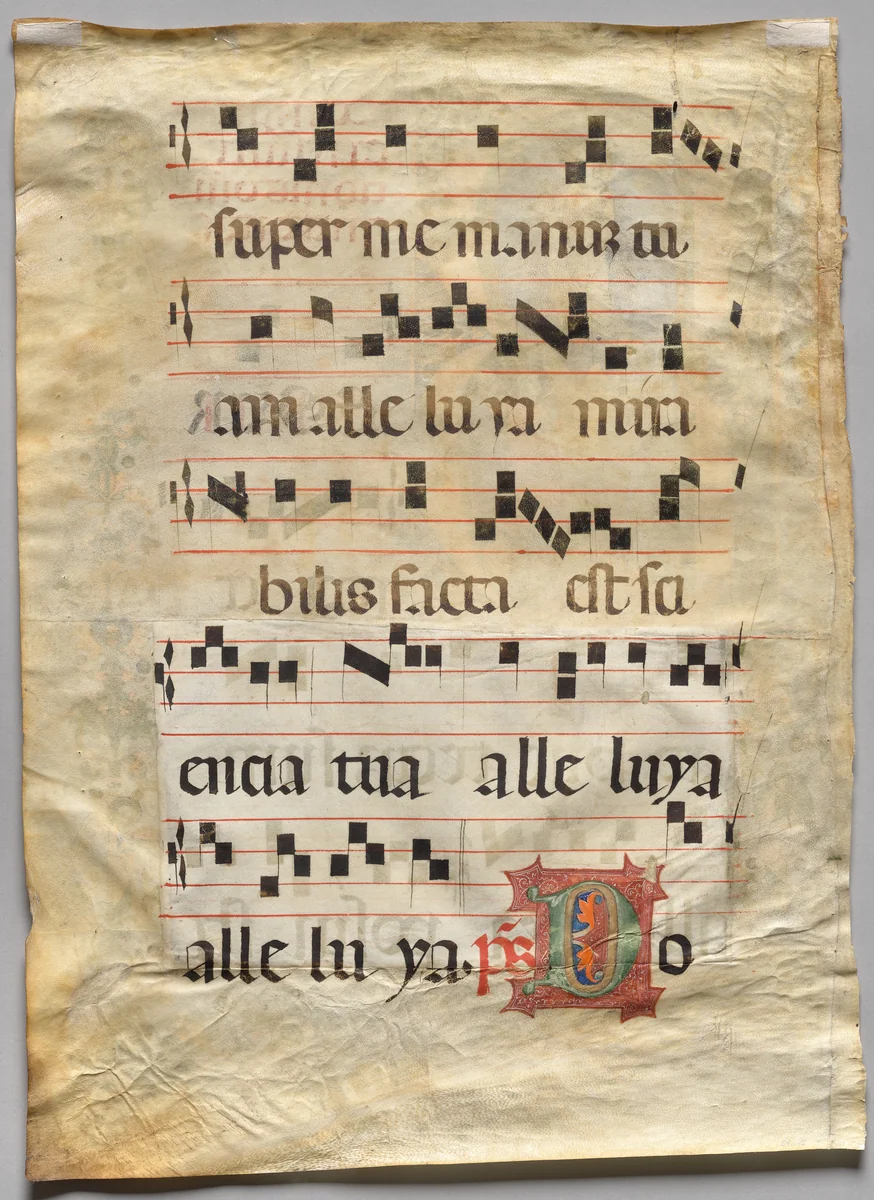 super me manuꝫ tu
am alle lu ya mira
bilis facta est sci
encia tua alle luya
alle lu ya. p̃s Do